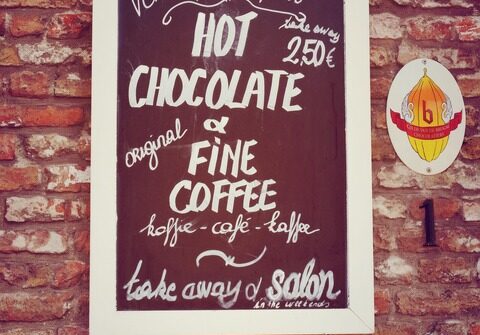 HOT
take away
2,50€
CHOCOLATE
&
ORIGINAL
FINE
COFFEE
koffie - café - kaffee
take away & salon
in the weekends
b
1